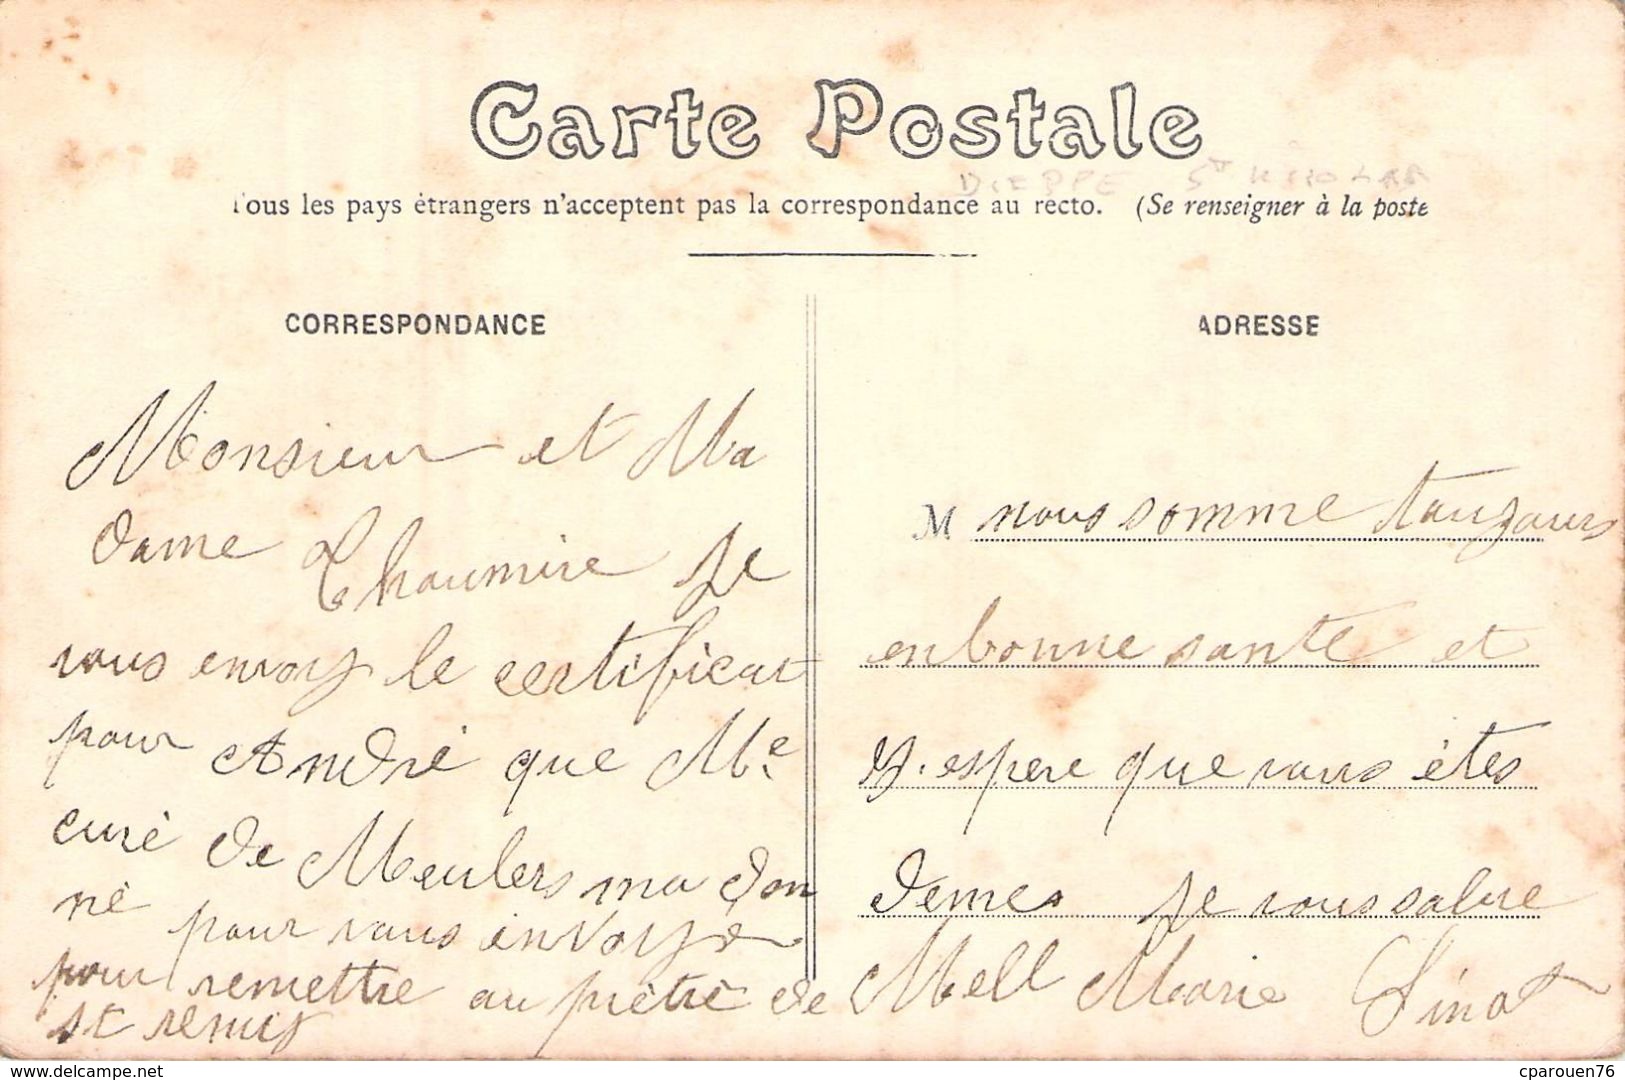 Carte Postale
DIEPPE
Tous les pays étrangers n'acceptent pas la correspondance au recto. (Se renseigner à la poste
CORRESPONDANCE
Monsieur et Ma
dame Thaumire Je
vous envoy le certificat
pour André que Mr.
curé de Meulers ma don
né pour vous envoyé
pour remettre au prêtre de
st remy
ADRESSE
M nous somme toujours
en bonne sante et
J. espere que vous êtes
demes Je vous salue
Mell Marie
delcampe.net
cparouen76